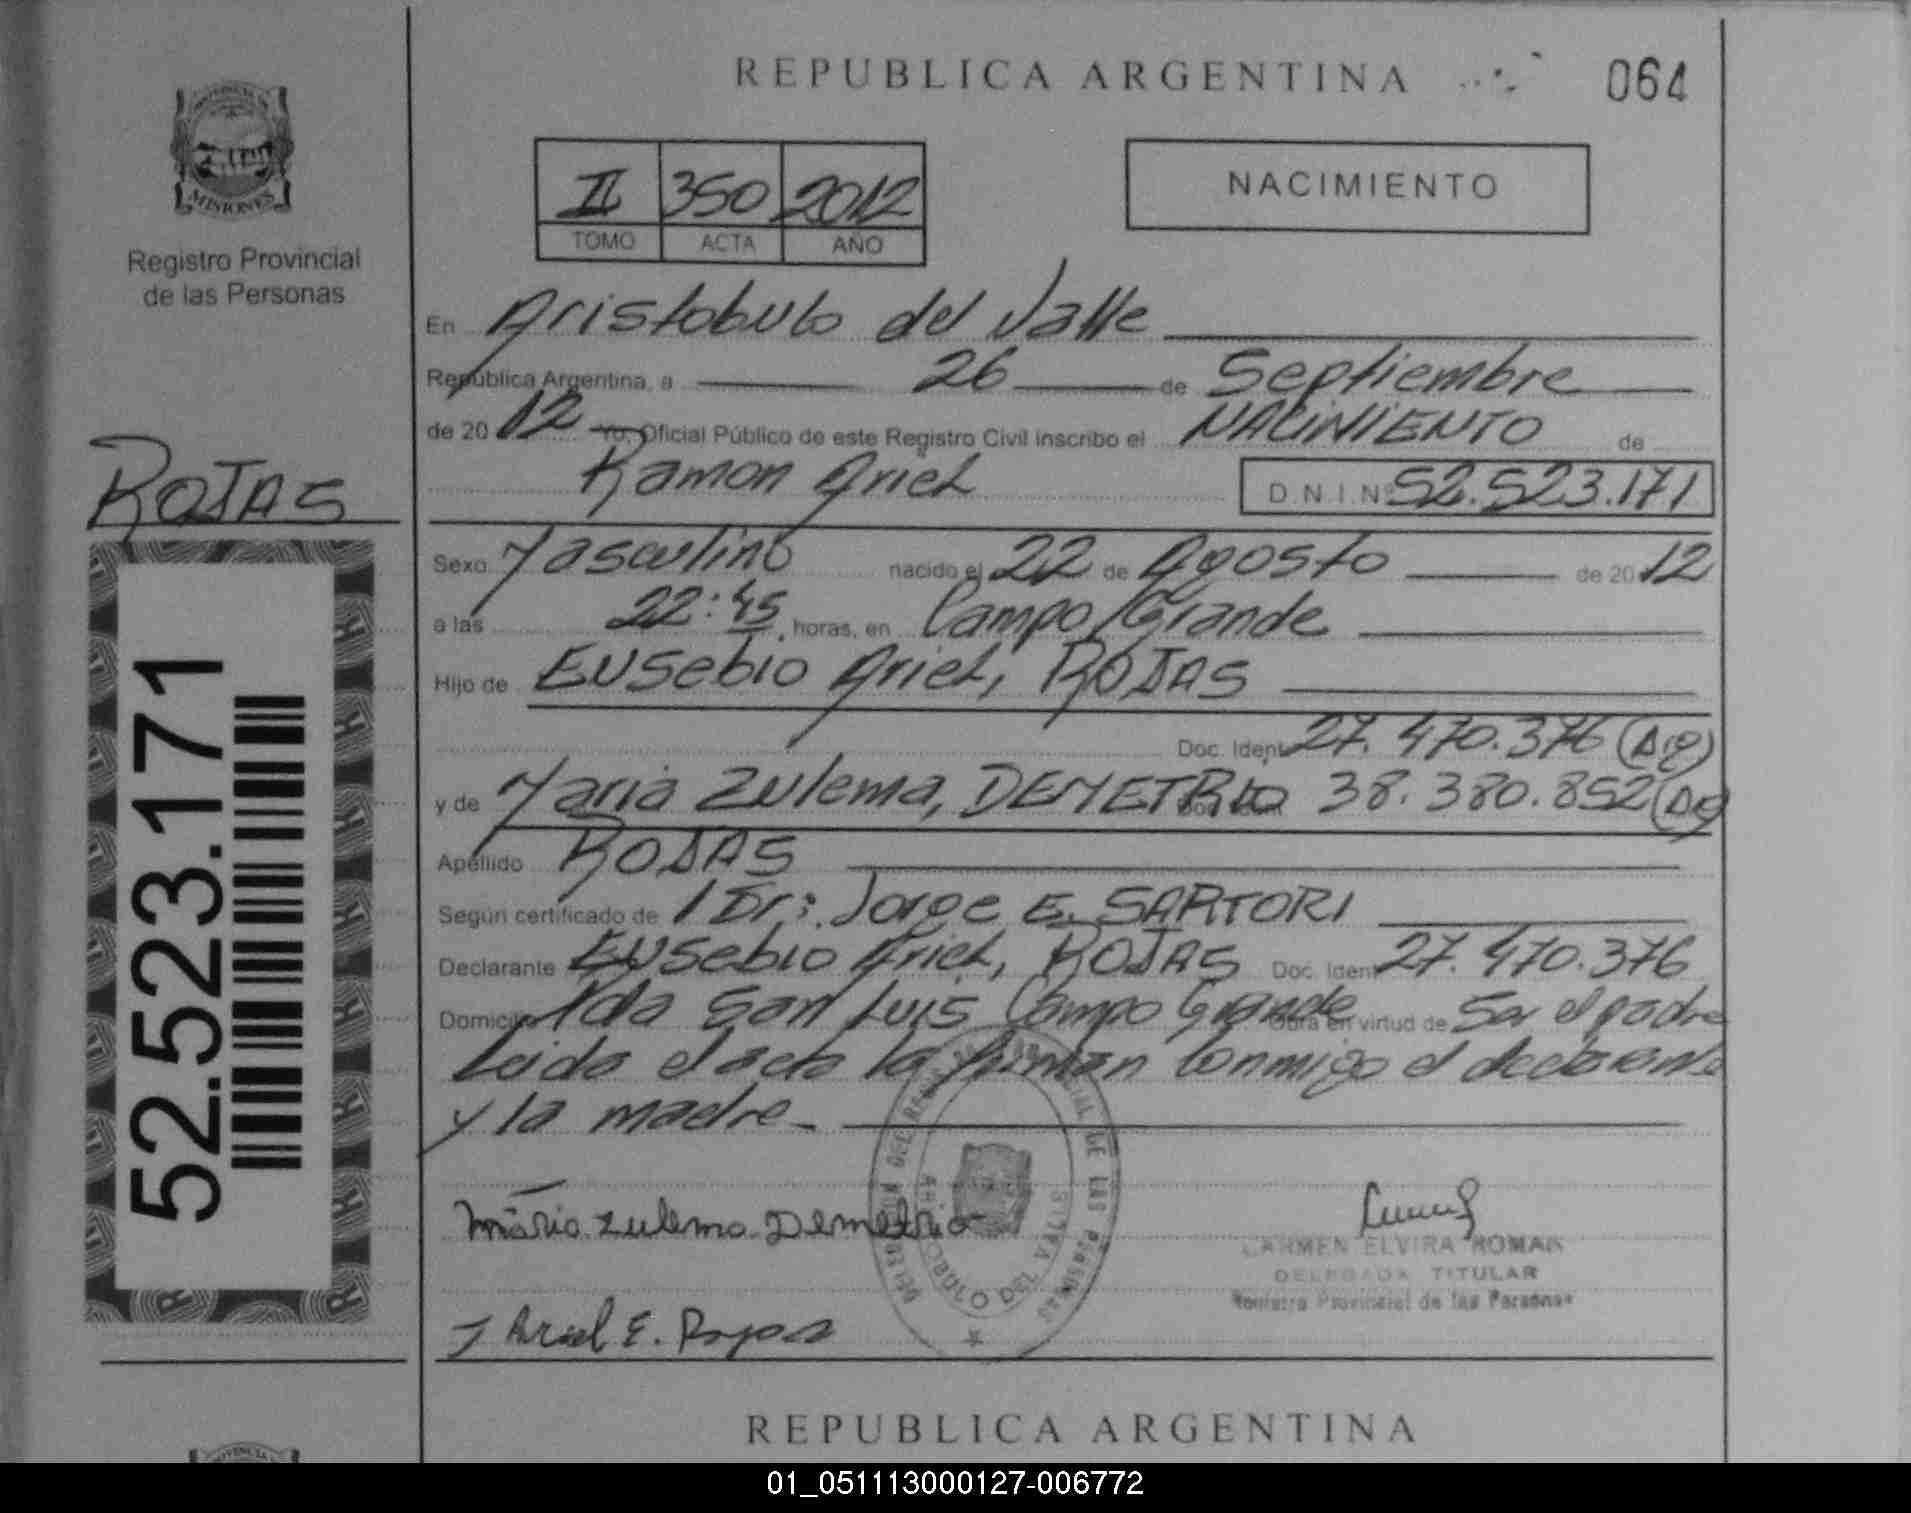 REPUBLICA ARGENTINA
064
PROVINCIA DE
MISIONES
Registro Provincial
de las Personas
II 350 2012
TOMO ACTA AÑO
NACIMIENTO
En Aristobulo del Valle
República Argentina, a 26 de Septiembre
de 2012 Yo, Oficial Público de este Registro Civil inscribo el NACIMIENTO de
ROJAS
Ramon Ariel D.N.I.Nº 52.523.171
Sexo Masculino nacido el 22 de Agosto de 2012
a las 22:45 horas, en Campo Grande
Hijo de Eusebio Ariel, ROJAS
Doc. Ident 27.470.376 (Arg)
y de Maria Zulema, DEMETRIO 38.380.852 (Arg)
Apellido ROJAS
Según certificado de Dr: Jorge E. SARTORI
Declarante Eusebio Ariel, ROJAS Doc. Ident 27.470.376
Domicilio San Luis Campo Grande Obra en virtud de Ser el padre
Leida el acta la firman conmigo el declarante
y la madre
52.523.171
Maria Zulema Demetrio
CARMEN ELVIRA ROMAN
DELEGADA TITULAR
Registro Provincial de las Personas
Ariel E. Rojas
DEL VALLE
DE LAS PERSONAS
REPUBLICA ARGENTINA
01_051113000127-006772